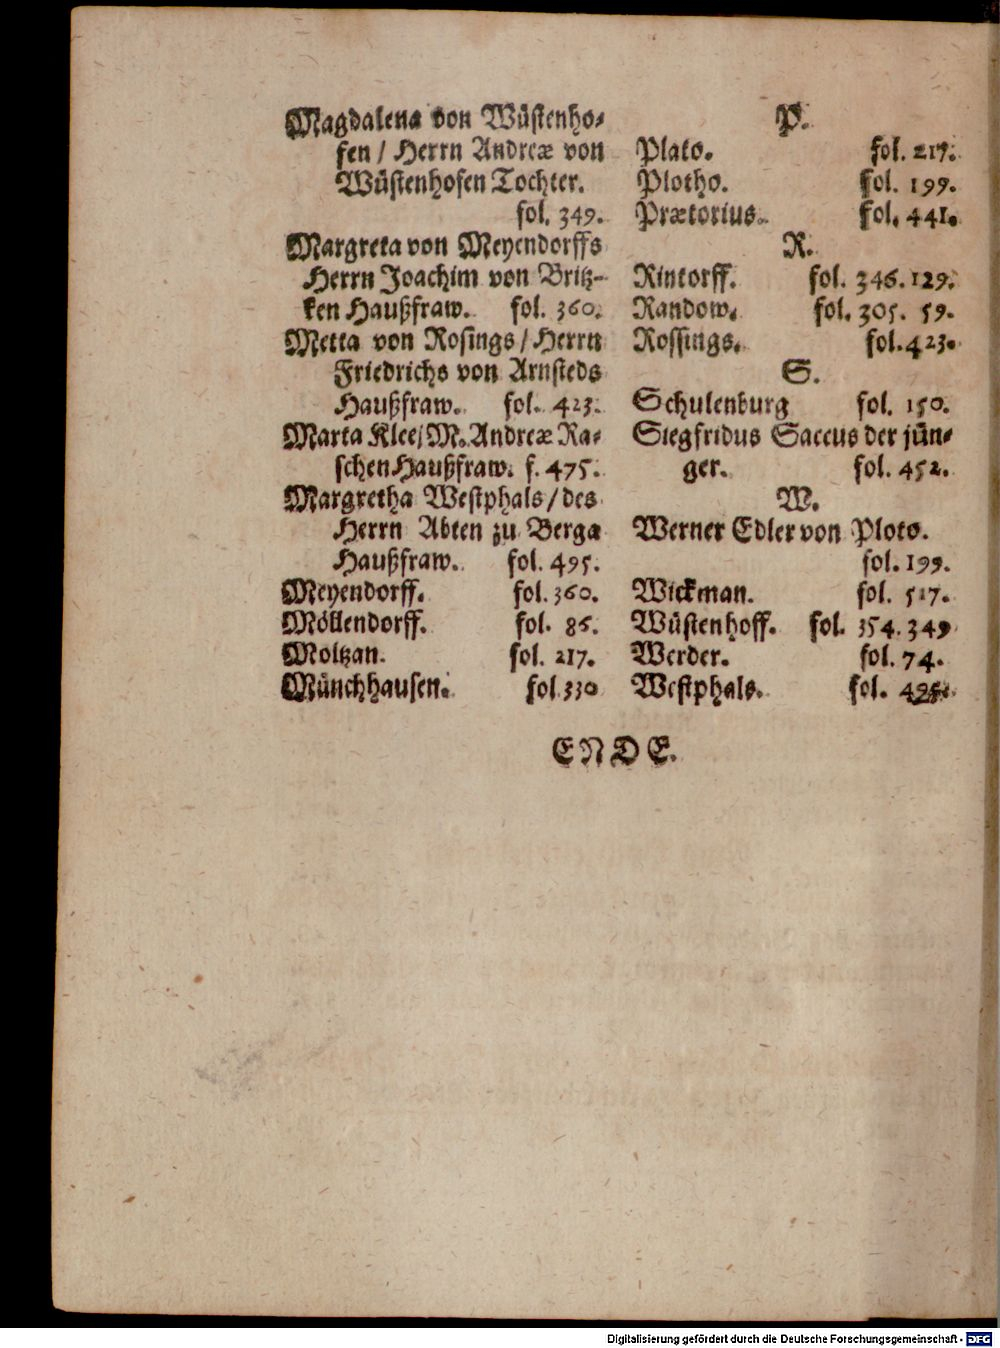 Magdalena von Wüstenho-
fen / Herrn Andreæ von
Wüstenhofen Tochter.
fol. 349.
Margreta von Meyendorffs
Herrn Joachim von Britz-
ken Haußfraw. fol. 360.
Metta von Rosings / Herrn
Friedrichs von Arnsteds
Haußfraw. fol. 423.
Marta Klee / M. Andreæ Ra-
schen Haußfraw. f. 475.
Margretha Westphals / des
Herrn Abten zu Berga
Haußfraw. fol. 495.
Meyendorff. fol. 360.
Möllendorff. fol. 86.
Moltzan. fol. 217.
Münchhausen. fol 330
P.
Plato. fol. 217.
Plotho. fol. 199.
Prætorius. fol. 441.
R.
Rintorff. fol. 346. 129.
Randow. fol. 305. 59.
Rossings. fol. 423.
S.
Schulenburg fol. 150.
Siegfridus Saccus der jün-
ger. fol. 452.
W.
Werner Edler von Ploto.
fol. 199.
Wickman. fol. 517.
Wüstenhoff. fol. 354. 349
Werder. fol. 74.
Westphals. fol. 495.
ENDE.
Digitalisierung gefördert durch die Deutsche Forschungsgemeinschaft - DFG